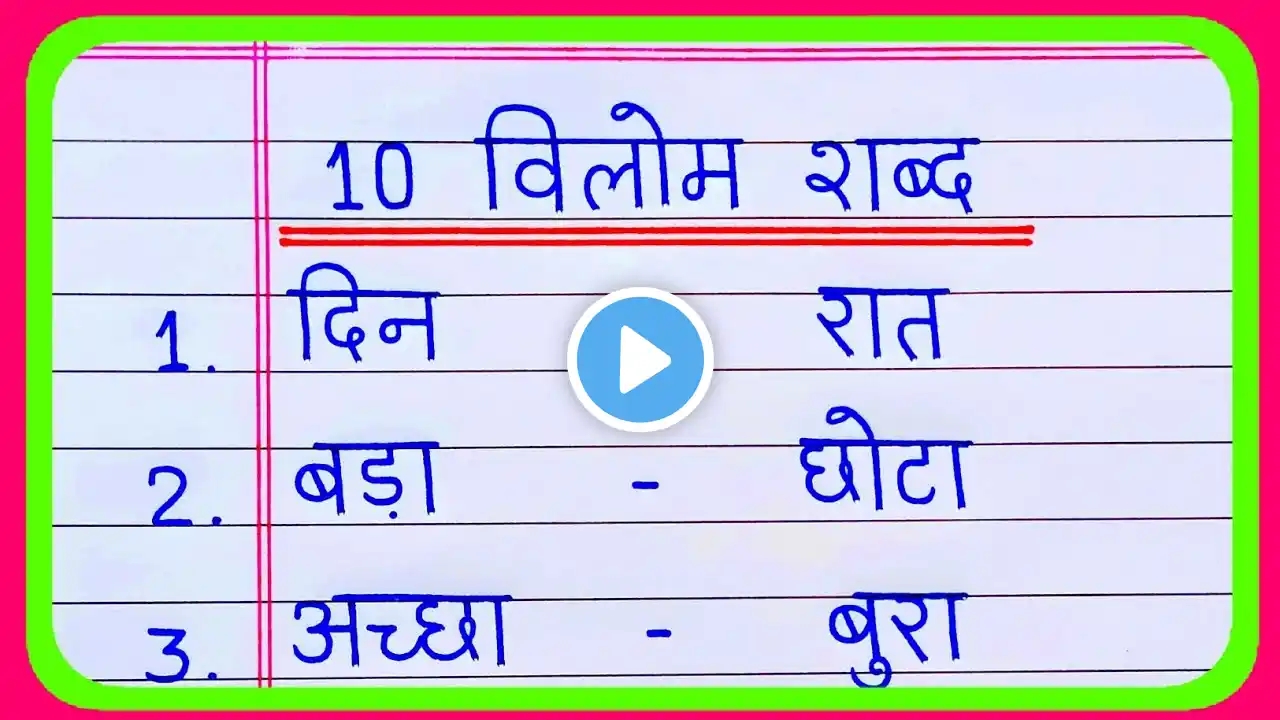 10 विलोम शब्द
1. दिन रात
2. बड़ा - छोटा
3. अच्छा - बुरा